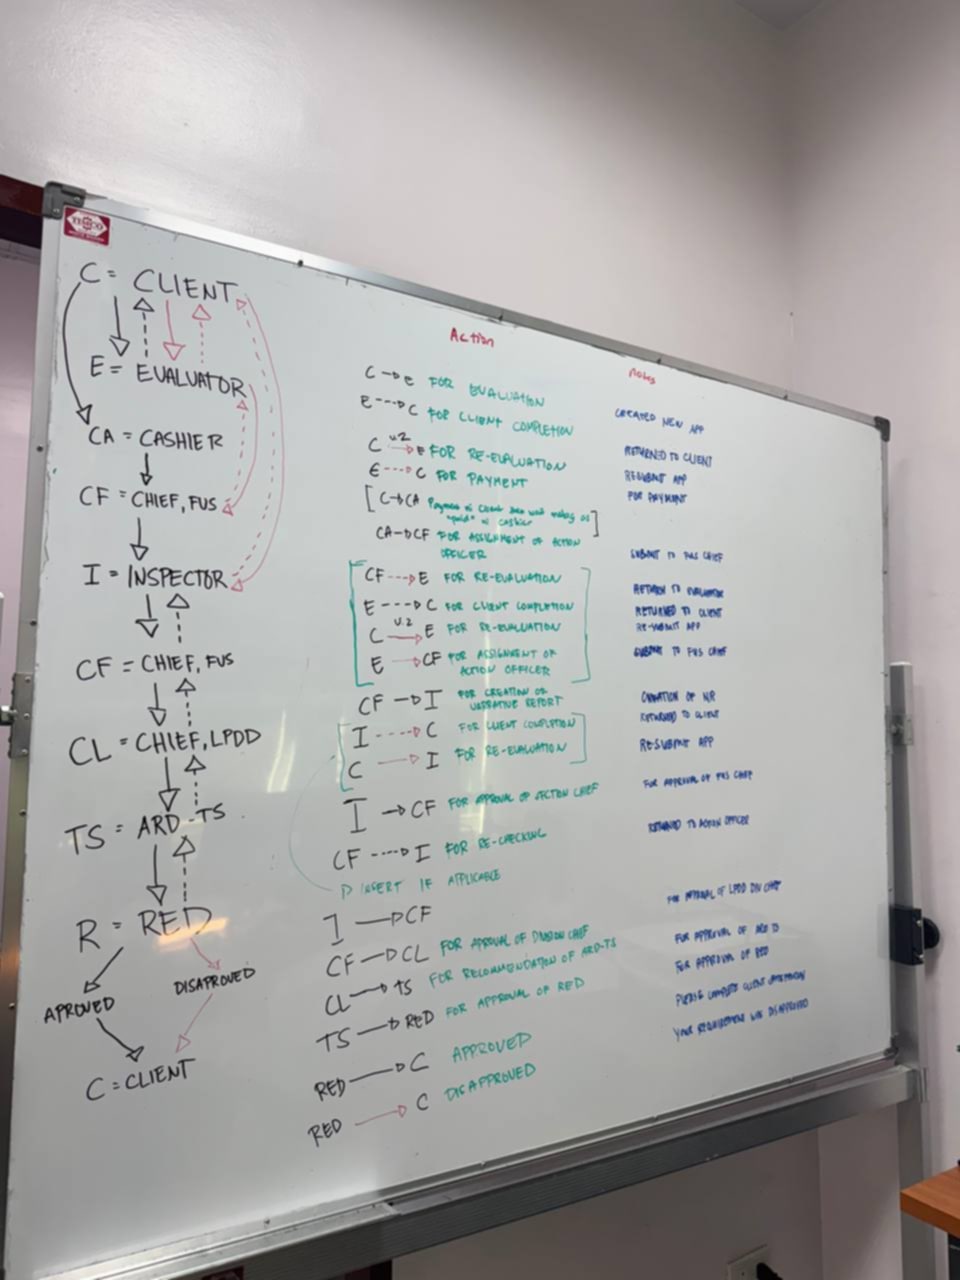 C = CLIENT
E = EVALUATOR
CA = CASHIER
CF = CHIEF, FUS
I = INSPECTOR
CF = CHIEF, FUS
CL = CHIEF, LPDD
TS = ARD-TS
R = RED
APROVED
DISAPROVED
C = CLIENT
Action
C → E FOR EVALUATION
E ---> C FOR CLIENT COMPLETION
C v.2 → E FOR RE-EVALUATION
E ---> C FOR PAYMENT
[C → CA
"paid" cashier]
CA → CF FOR ASSIGNMENT OF ACTION
OFFICER
CF ---> E FOR RE-EVALUATION
E ---> C FOR CLIENT COMPLETION
C v.2 → E FOR RE-EVALUATION
E → CF FOR ASSIGNMENT OF
ACTION OFFICER
CF → I FOR CREATION OF
NARRATIVE REPORT
I ---> C FOR CLIENT COMPLETION
C → I FOR RE-EVALUATION
I → CF FOR APPROVAL OF SECTION CHIEF
CF ---> I FOR RE-CHECKING
INSERT IF APPLICABLE
I → CF
CF → CL FOR APROVAL OF DIVISION CHIEF
CL → TS FOR RECOMMENDATION OF ARD-TS
TS → RED FOR APPROVAL OF RED
RED → C APPROVED
RED → C DISAPPROVED
Notes
CREATED NEW APP
RETURNED TO CLIENT
RESUBMIT APP
FOR PAYMENT
SUBMIT TO FUS CHIEF
RETURN TO EVALUATOR
RETURNED TO CLIENT
RE-SUBMIT APP
SUBMIT TO FUS CHIEF
CREATION OF NR
RETURNED TO CLIENT
RE-SUBMIT APP
FOR APPROVAL OF FUS CHIEF
RETURNED TO ACTION OFFICER
FOR APPROVAL OF LPDD DIV CHIEF
FOR APPROVAL OF ARD TS
FOR APPROVAL OF RED
PLEASE COMPLETE CLIENT
YOUR REQUIREMENT WAS DISAPPROVED